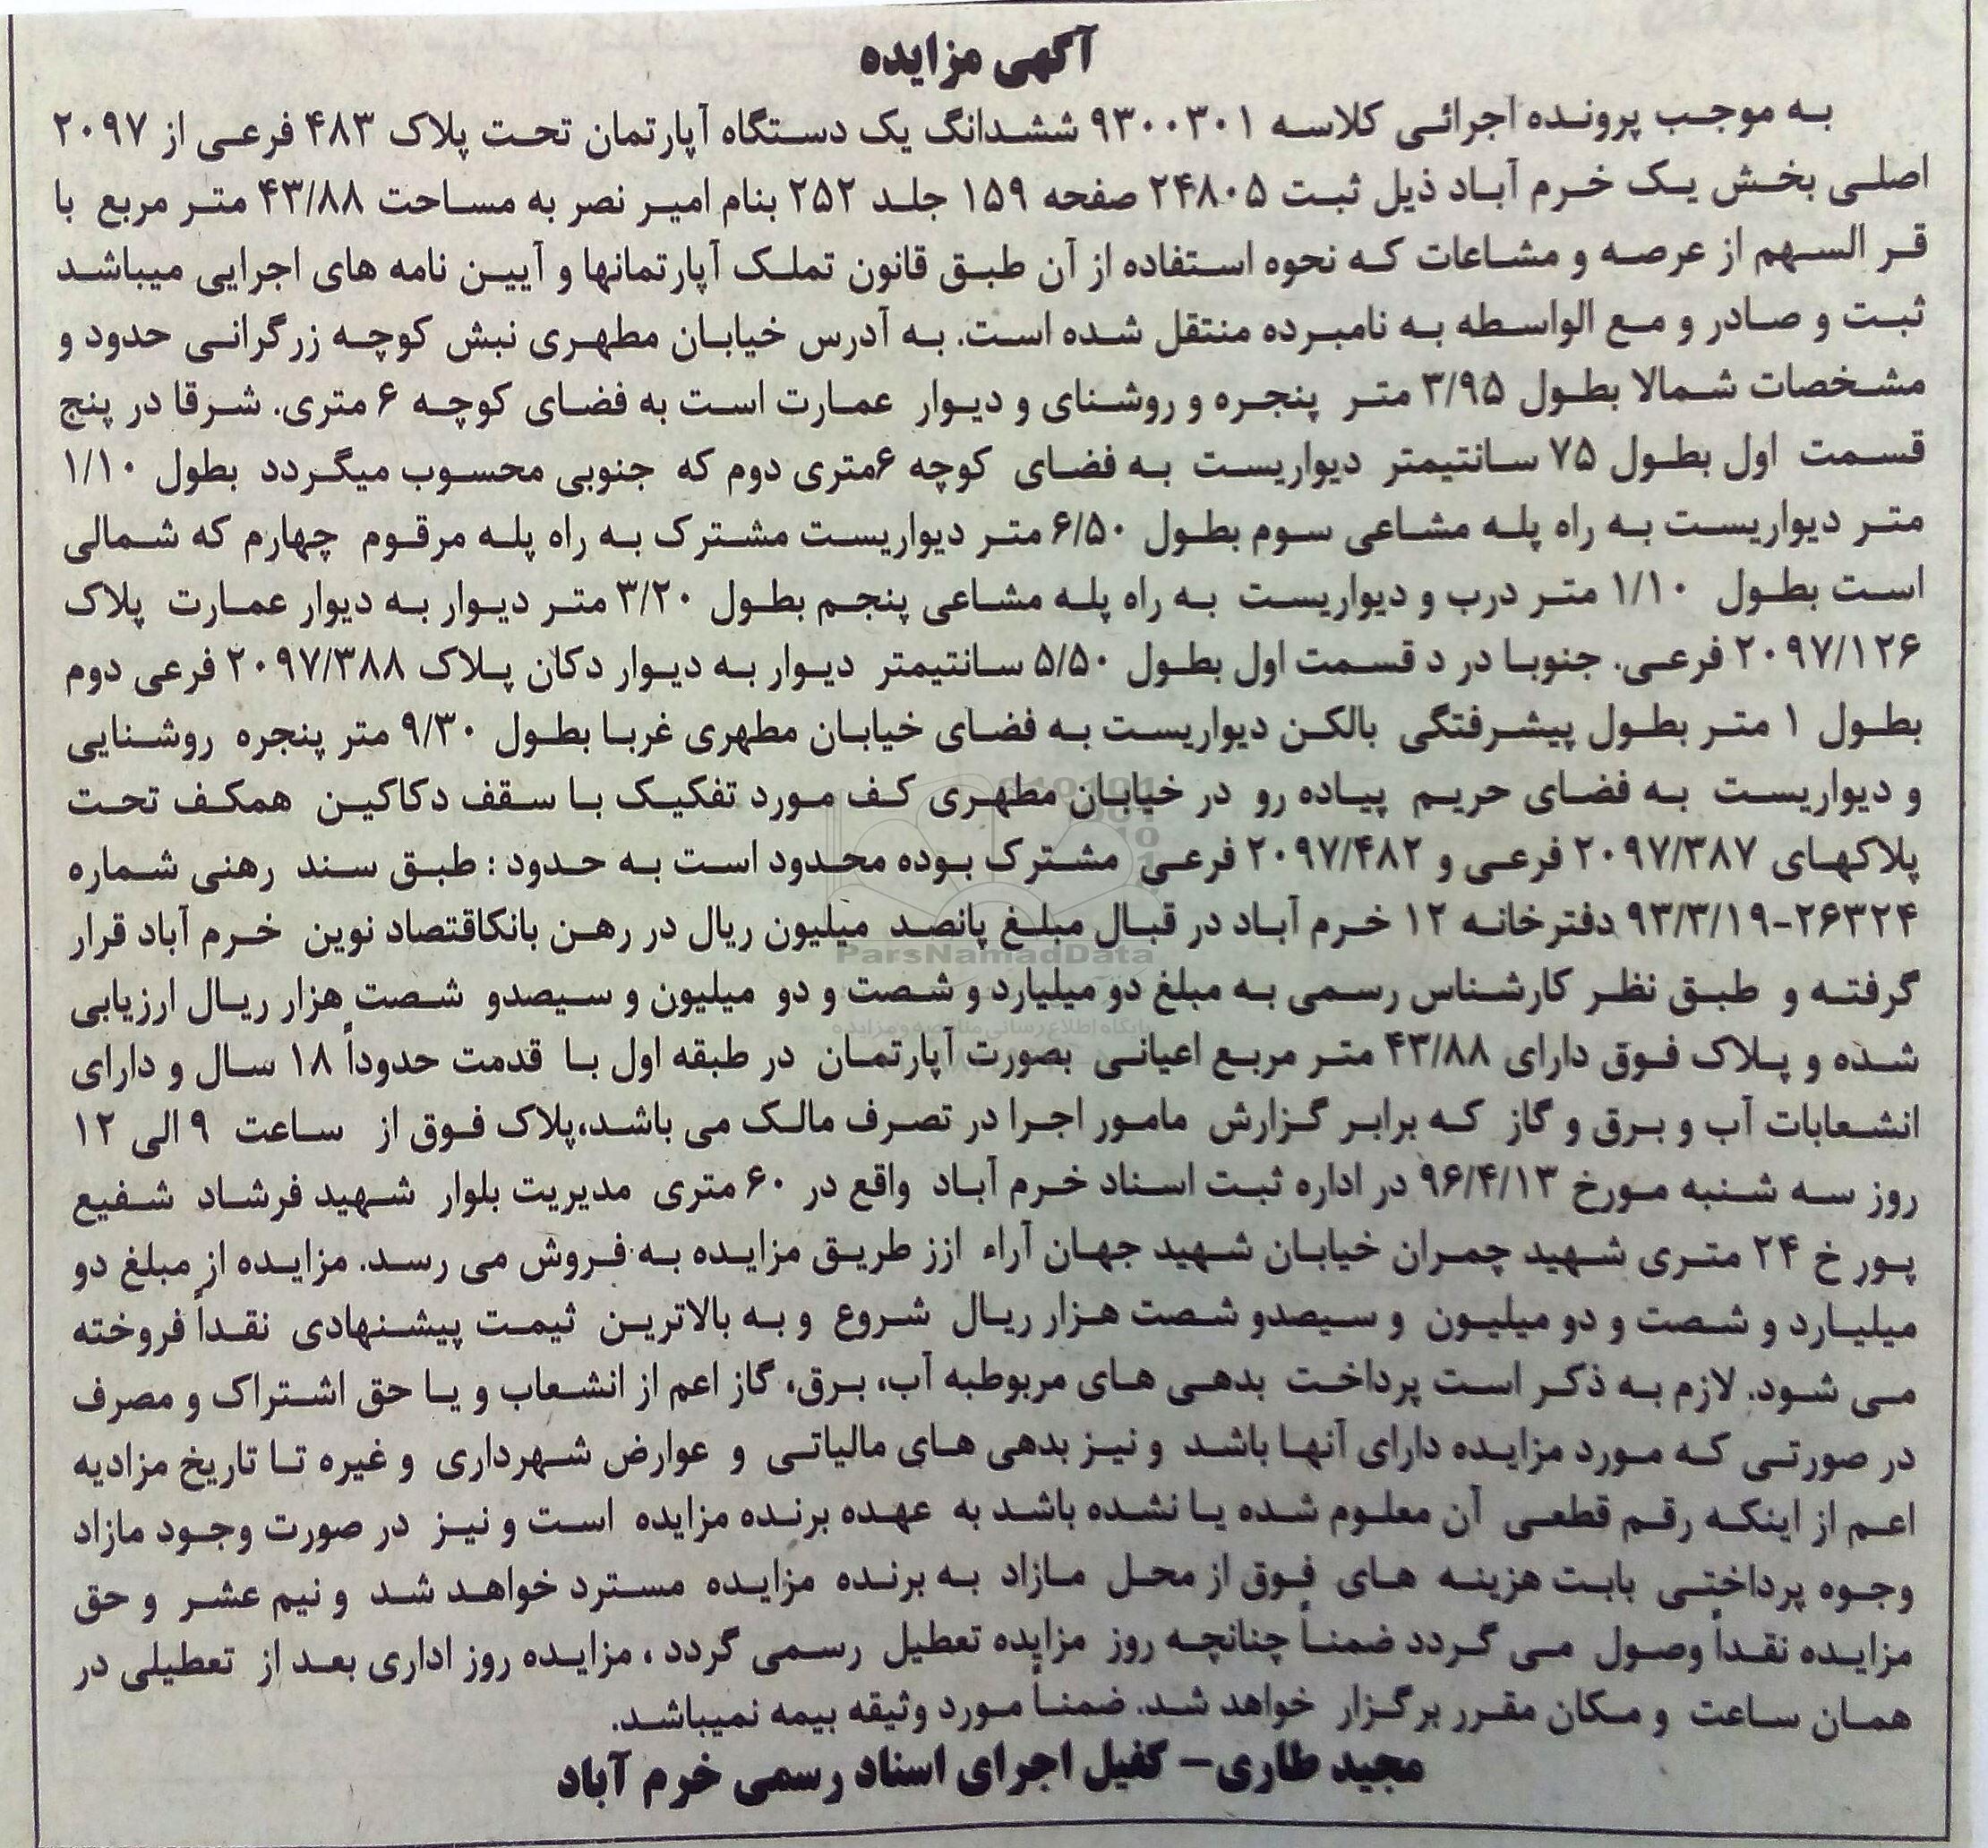 آگهی مزایده
به موجب پرونده اجرائی کلاسه ۹۳۰۰۳۰۱ ششدانگ یک دستگاه آپارتمان تحت پلاک ۴۸۳ فرعی از ۲۰۹۷
اصلی بخش یک خرم آباد ذیل ثبت ۲۴۸۰۵ صفحه ۱۵۹ جلد ۲۵۲ بنام امیر نصر به مساحت ۴۳/۸۸ متر مربع با
قر السهم از عرصه و مشاعات که نحوه استفاده از آن طبق قانون تملک آپارتمانها و آیین نامه های اجرایی میباشد
ثبت و صادر و مع الواسطه به نامبرده منتقل شده است. به آدرس خیابان مطهری نبش کوچه زرگرانی حدود و
مشخصات شمالا بطول ۳/۹۵ متر پنجره و روشنای و دیوار عمارت است به فضای کوچه ۶ متری. شرقا در پنج
قسمت اول بطول ۷۵ سانتیمتر دیواریست به فضای کوچه ۶متری دوم که جنوبی محسوب میگردد بطول ۱/۱۰
متر دیواریست به راه پله مشاعی سوم بطول ۶/۵۰ متر دیواریست مشترک به راه پله مرقوم چهارم که شمالی
است بطول ۱/۱۰ متر درب و دیواریست به راه پله مشاعی پنجم بطول ۳/۲۰ متر دیوار به دیوار عمارت پلاک
۲۰۹۷/۱۲۶ فرعی. جنوبا در د قسمت اول بطول ۵/۵۰ سانتیمتر دیوار به دیوار دکان پلاک ۲۰۹۷/۳۸۸ فرعی دوم
بطول ۱ متر بطول پیشرفتگی بالکن دیواریست به فضای خیابان مطهری غربا بطول ۹/۳۰ متر پنجره روشنایی
و دیواریست به فضای حریم پیاده رو در خیابان مطهری کف مورد تفکیک با سقف دکاکین همکف تحت
پلاکهای ۲۰۹۷/۳۸۷ فرعی و ۲۰۹۷/۴۸۲ فرعی مشترک بوده محدود است به حدود : طبق سند رهنی شماره
۲۶۳۲۴-۹۳/۳/۱۹ دفترخانه ۱۲ خرم آباد در قبال مبلغ پانصد میلیون ریال در رهن بانکاقتصاد نوین خرم آباد قرار
ParsNamadData
گرفته و طبق نظر کارشناس رسمی به مبلغ دو میلیارد و شصت و دو میلیون و سیصدو شصت هزار ریال ارزیابی
پایگاه اطلاع رسانی مناقصه و مزایده
شده و پلاک فوق دارای ۴۳/۸۸ متر مربع اعیانی بصورت آپارتمان در طبقه اول با قدمت حدوداً ۱۸ سال و دارای
انشعابات آب و برق و گاز که برابر گزارش مامور اجرا در تصرف مالک می باشد،پلاک فوق از ساعت ۹ الی ۱۲
روز سه شنبه مورخ ۹۶/۴/۱۳ در اداره ثبت اسناد خرم آباد واقع در ۶۰ متری مدیریت بلوار شهید فرشاد شفیع
پور خ ۲۴ متری شهید چمران خیابان شهید جهان آراء ازز طریق مزایده به فروش می رسد. مزایده از مبلغ دو
میلیارد و شصت و دو میلیون و سیصدو شصت هزار ریال شروع و به بالاترین ثیمت پیشنهادی نقداً فروخته
می شود. لازم به ذکر است پرداخت بدهی های مربوطبه آب، برق، گاز اعم از انشعاب و یا حق اشتراک و مصرف
در صورتی که مورد مزایده دارای آنها باشد و نیز بدهی های مالیاتی و عوارض شهرداری و غیره تا تاریخ مزادیه
اعم از اینکه رقم قطعی آن معلوم شده یا نشده باشد به عهده برنده مزایده است و نیز در صورت وجود مازاد
وجوه پرداختی بابت هزینه های فوق از محل مازاد به برنده مزایده مسترد خواهد شد و نیم عشر و حق
مزایده نقداً وصول می گردد ضمناً چنانچه روز مزایده تعطیل رسمی گردد ، مزایده روز اداری بعد از تعطیلی در
همان ساعت و مکان مقرر برگزار خواهد شد. ضمناً مورد وثیقه بیمه نمیباشد.
مجید طاری- کفیل اجرای اسناد رسمی خرم آباد